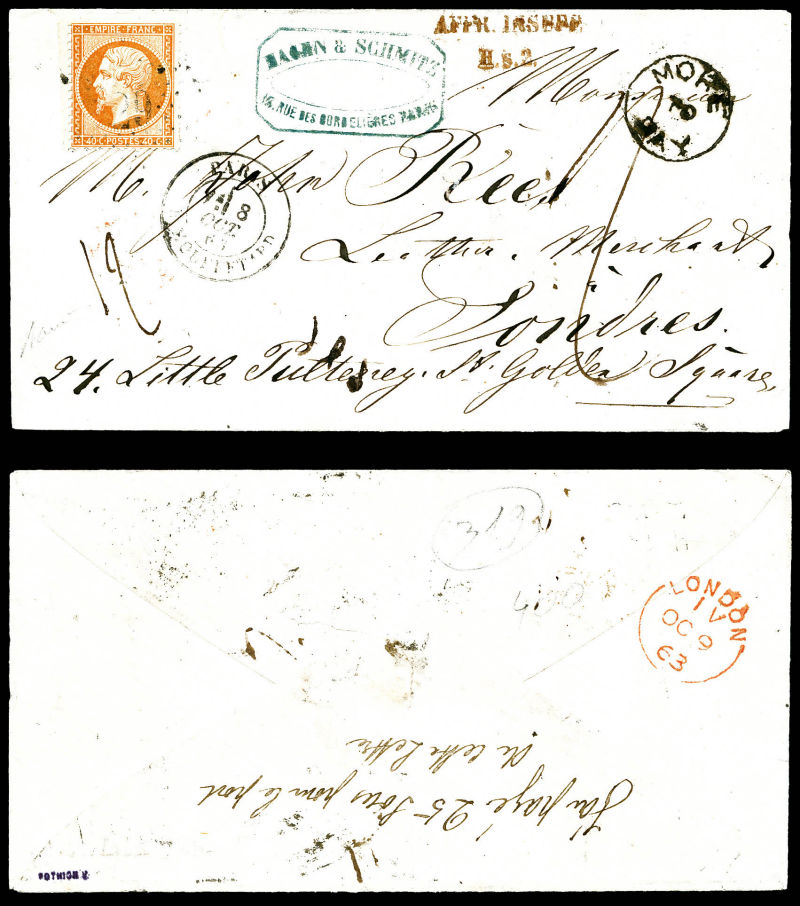 EMPIRE FRANC.
40 C POSTES 40 C
HAGEN & SCHMITZ
RUE DES CORDELIÈRES PARIS
AFFR. INSUFF.
MORE TO PAY
Monsieur
M. John Rees
PARIS
8
OCT
63
Leather Merchant
12
Londres.
24. Little Pulteney. St Golden Square
LONDON
1V
OC 9
63
J'ai payé 25 Sous pour le port
de cette Lettre
POTHION